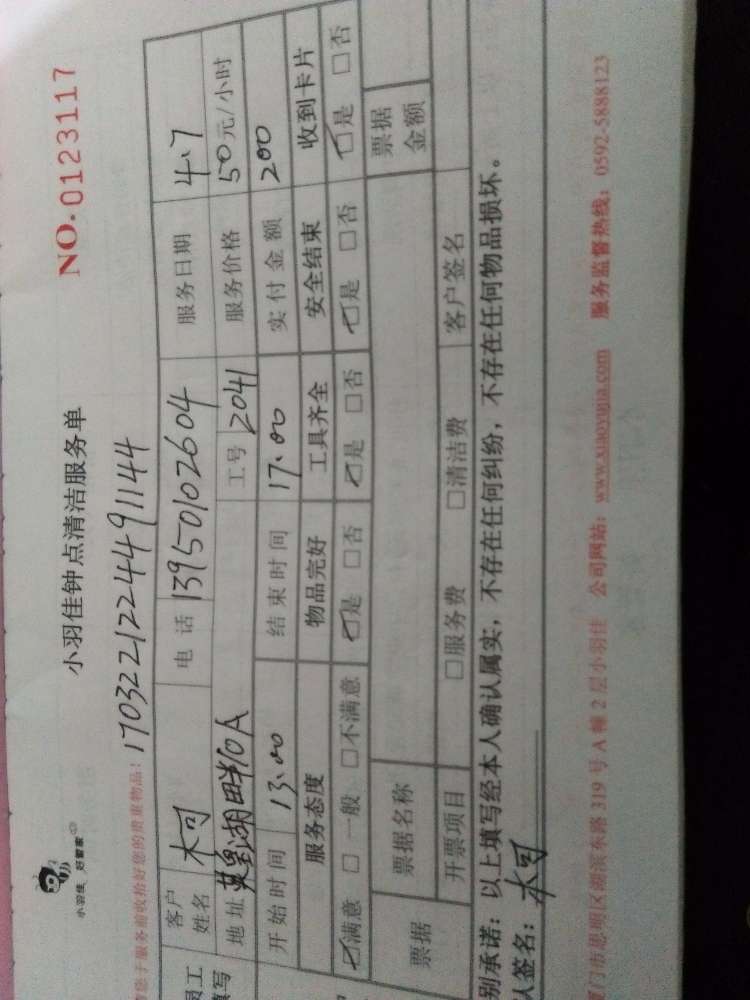 小羽佳 好管家
小羽佳钟点清洁服务单
NO.0123117
您于服务前收拾好您的贵重物品：170322122449 1144
客户姓名 木可 电话 13950102604 服务日期 4.7
地址 莫里湖畔10A 工号 2041 服务价格 50元/小时
开始时间 13.00 结束时间 17.00 实付金额 200
服务态度 物品完好 工具齐全 安全结束 收到卡片
☑满意 □一般 □不满意 ☑是 □否 ☑是 □否 ☑是 □否 ☑是 □否
票据 票据名称 票据金额
开票项目 □服务费 □清洁费 客户签名
别承诺：以上填写经本人确认属实，不存在任何纠纷，不存在任何物品损坏。
人签名：木可
厦门市思明区湖滨东路319号A幢2层小羽佳 公司网站：www.xiaoyujia.com 服务监督热线：0592-5888123